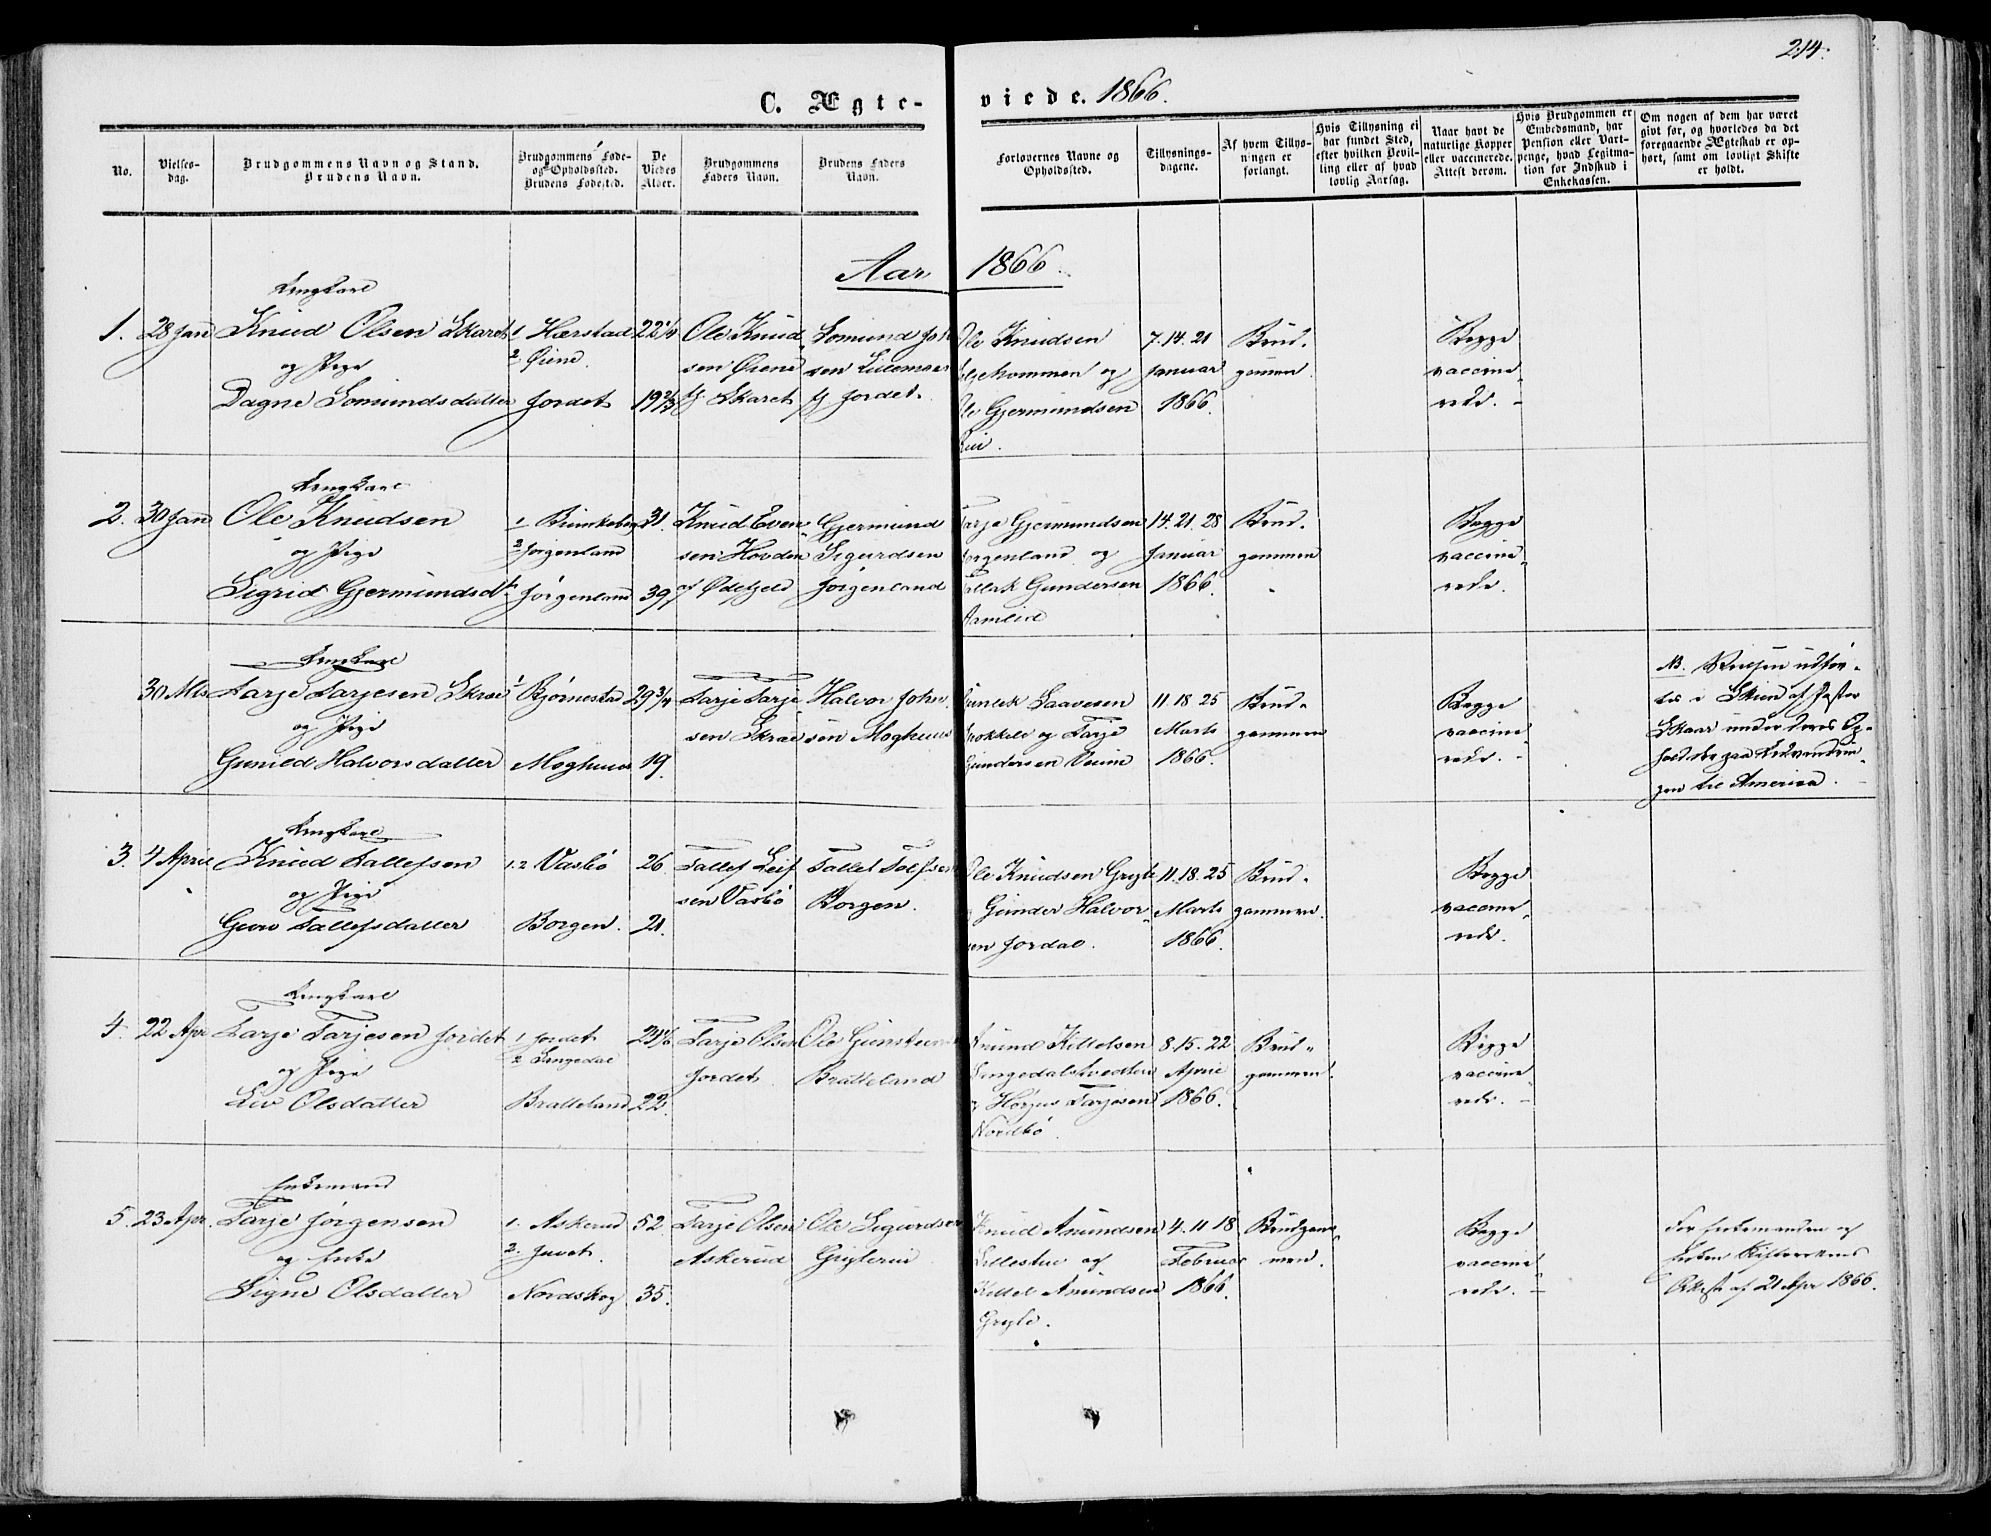 214.
C. Ægte-viede. 1866.
No.
Vielses-
dag.
Brudgommens Navn og Stand.
Brudens Navn.
Brudgommens Føde-
og Opholdssted.
Brudens Fødested.
De
Viedes
Alder.
Brudgommens
Faders Navn.
Brudens Faders
Navn.
Forlovernes Navne og
Opholdssted.
Tillysnings-
dagene.
Af hvem Tillys-
ningen er
forlangt.
Hvis Tillysning ei
har fundet Sted,
efter hvilken Bevil-
ling eller af hvad
lovlig Aarsag.
Naar havt de
naturlige Kopper
eller vaccinerede.
Attest derom.
Hvis Brudgommen er
Embedsmand, har
Pension eller Vart-
penge, hvad Legitima-
tion for Indskud i
Enkekassen.
Om nogen af dem har været
gift før, og hvorledes da det
foregaaende Ægteskab er op-
hørt, samt om lovligt Skifte
er holdt.
Aar 1866.
1.
28 Jan
Ungkarl
Knud Olsen Skaret
og Pige
Dagne Somundsdatter
1. Harstad
2. Øiene
Jordet
22 1/4
19 2/3
Ole Knud
sen Øiene
af Skaret
Somund Joh
sen Lillemoen
af Jordet.
Ole Knudsen
Mommen og
Ole Gjermundsen
7. 14. 21
Januar
1866.
Brud-
gommen.
Begge
vaccine-
rede. -
2.
30 Jan
Ungkarl
Ole Knudsen
og Pige
Sigrid Gjermundsdtr
2 Jørgenland
Jørgenland
31.
39
Knud Even
sen Hovden
af Ødefjeld
Gjermund
Sigurdsen
Jørgenland
Tarje Gjermundsen
Jørgenland og
Tallak Gundersen
Aamlid
14. 21. 28
Januar
1866.
Brud-
gommen
Begge
vaccine-
rede.
30 Mts
Ungkarl
Tarje Tarjesen Skrae
og Pige
Gunild Halvorsdatter
1 Bjørnestad
Moghuus
29 3/4
19.
Tarje Tarje
sen Skrae
Halvor John
sen Moghuus
Gunlek Saavesen
Brokkele og Tarje
Gundersen Veum
11. 18. 25
Marts
1866.
Brud-
gommen
Begge
vaccine
rede. -
NB. Vielsen udfør-
tes i Skien af Pastor
Skaar under deres Op-
hold der paa Udvandrin-
gen til America.
3.
4 April
Ungkarl
Knud Tallefsen
og Pige
Guro Tallefsdatter
1. 2 Vasbø
Borgen.
26
21.
Tallef Leif
sen Vasbø
Tallef Tolfsen
Borgen.
Ole Knudsen Grylt
Gunder Halvor-
sen Jordal.
11. 18. 25
Marts
1866.
Brud-
gommen.
Begge
vaccine-
rede.
4.
22 Apr
Ungkarl
Tarje Tarjesen Jordet
og Pige
Liv Olsdatter
1 Jordet
2 Langedal
Bratteland
22.
Tarje Olsen
Jordet
Ole Gunsteins
Bratteland
Anund Kittelsen
Langedalstvedten
og Herjus Tarjesen
Nordbø.
8. 15. 22
April
1866.
Brud-
gommen.
Begge
vaccine-
rede. -
5.
23 Apr.
Enkemand
Tarje Jørgensen
og Enke
Signe Olsdatter
1. Askerud
2. Juvet.
Nordskog
52
35.
Tarje Olsen
Askerud
Ole Sigurdsen
Grylerui
Knud Anundsen
Lillestue og
Kittel Anundsen
Gryle.
4. 11 18
Februar
1866.
Brudgom-
men.
Begge
vaccine
rede. -
For Enkemanden og
Enken Skifterettens
Attest af 21 Apr 1866.